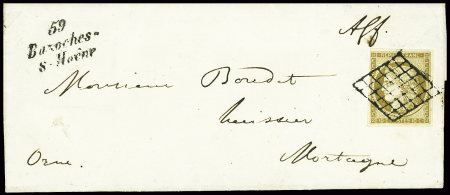 59
Bazoches-
s-Hoëne
Aff.
REPUB. FRANC.
Monsieur Boudet
huissier
Mortagne
Orne.